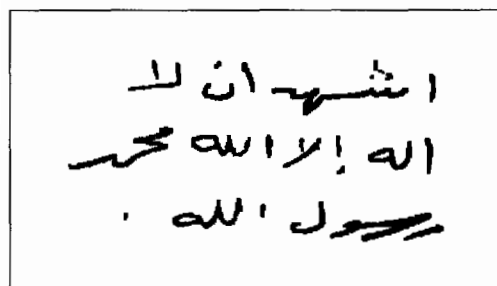 اشهد ان لا
اله إلا الله محمد
رسول الله .